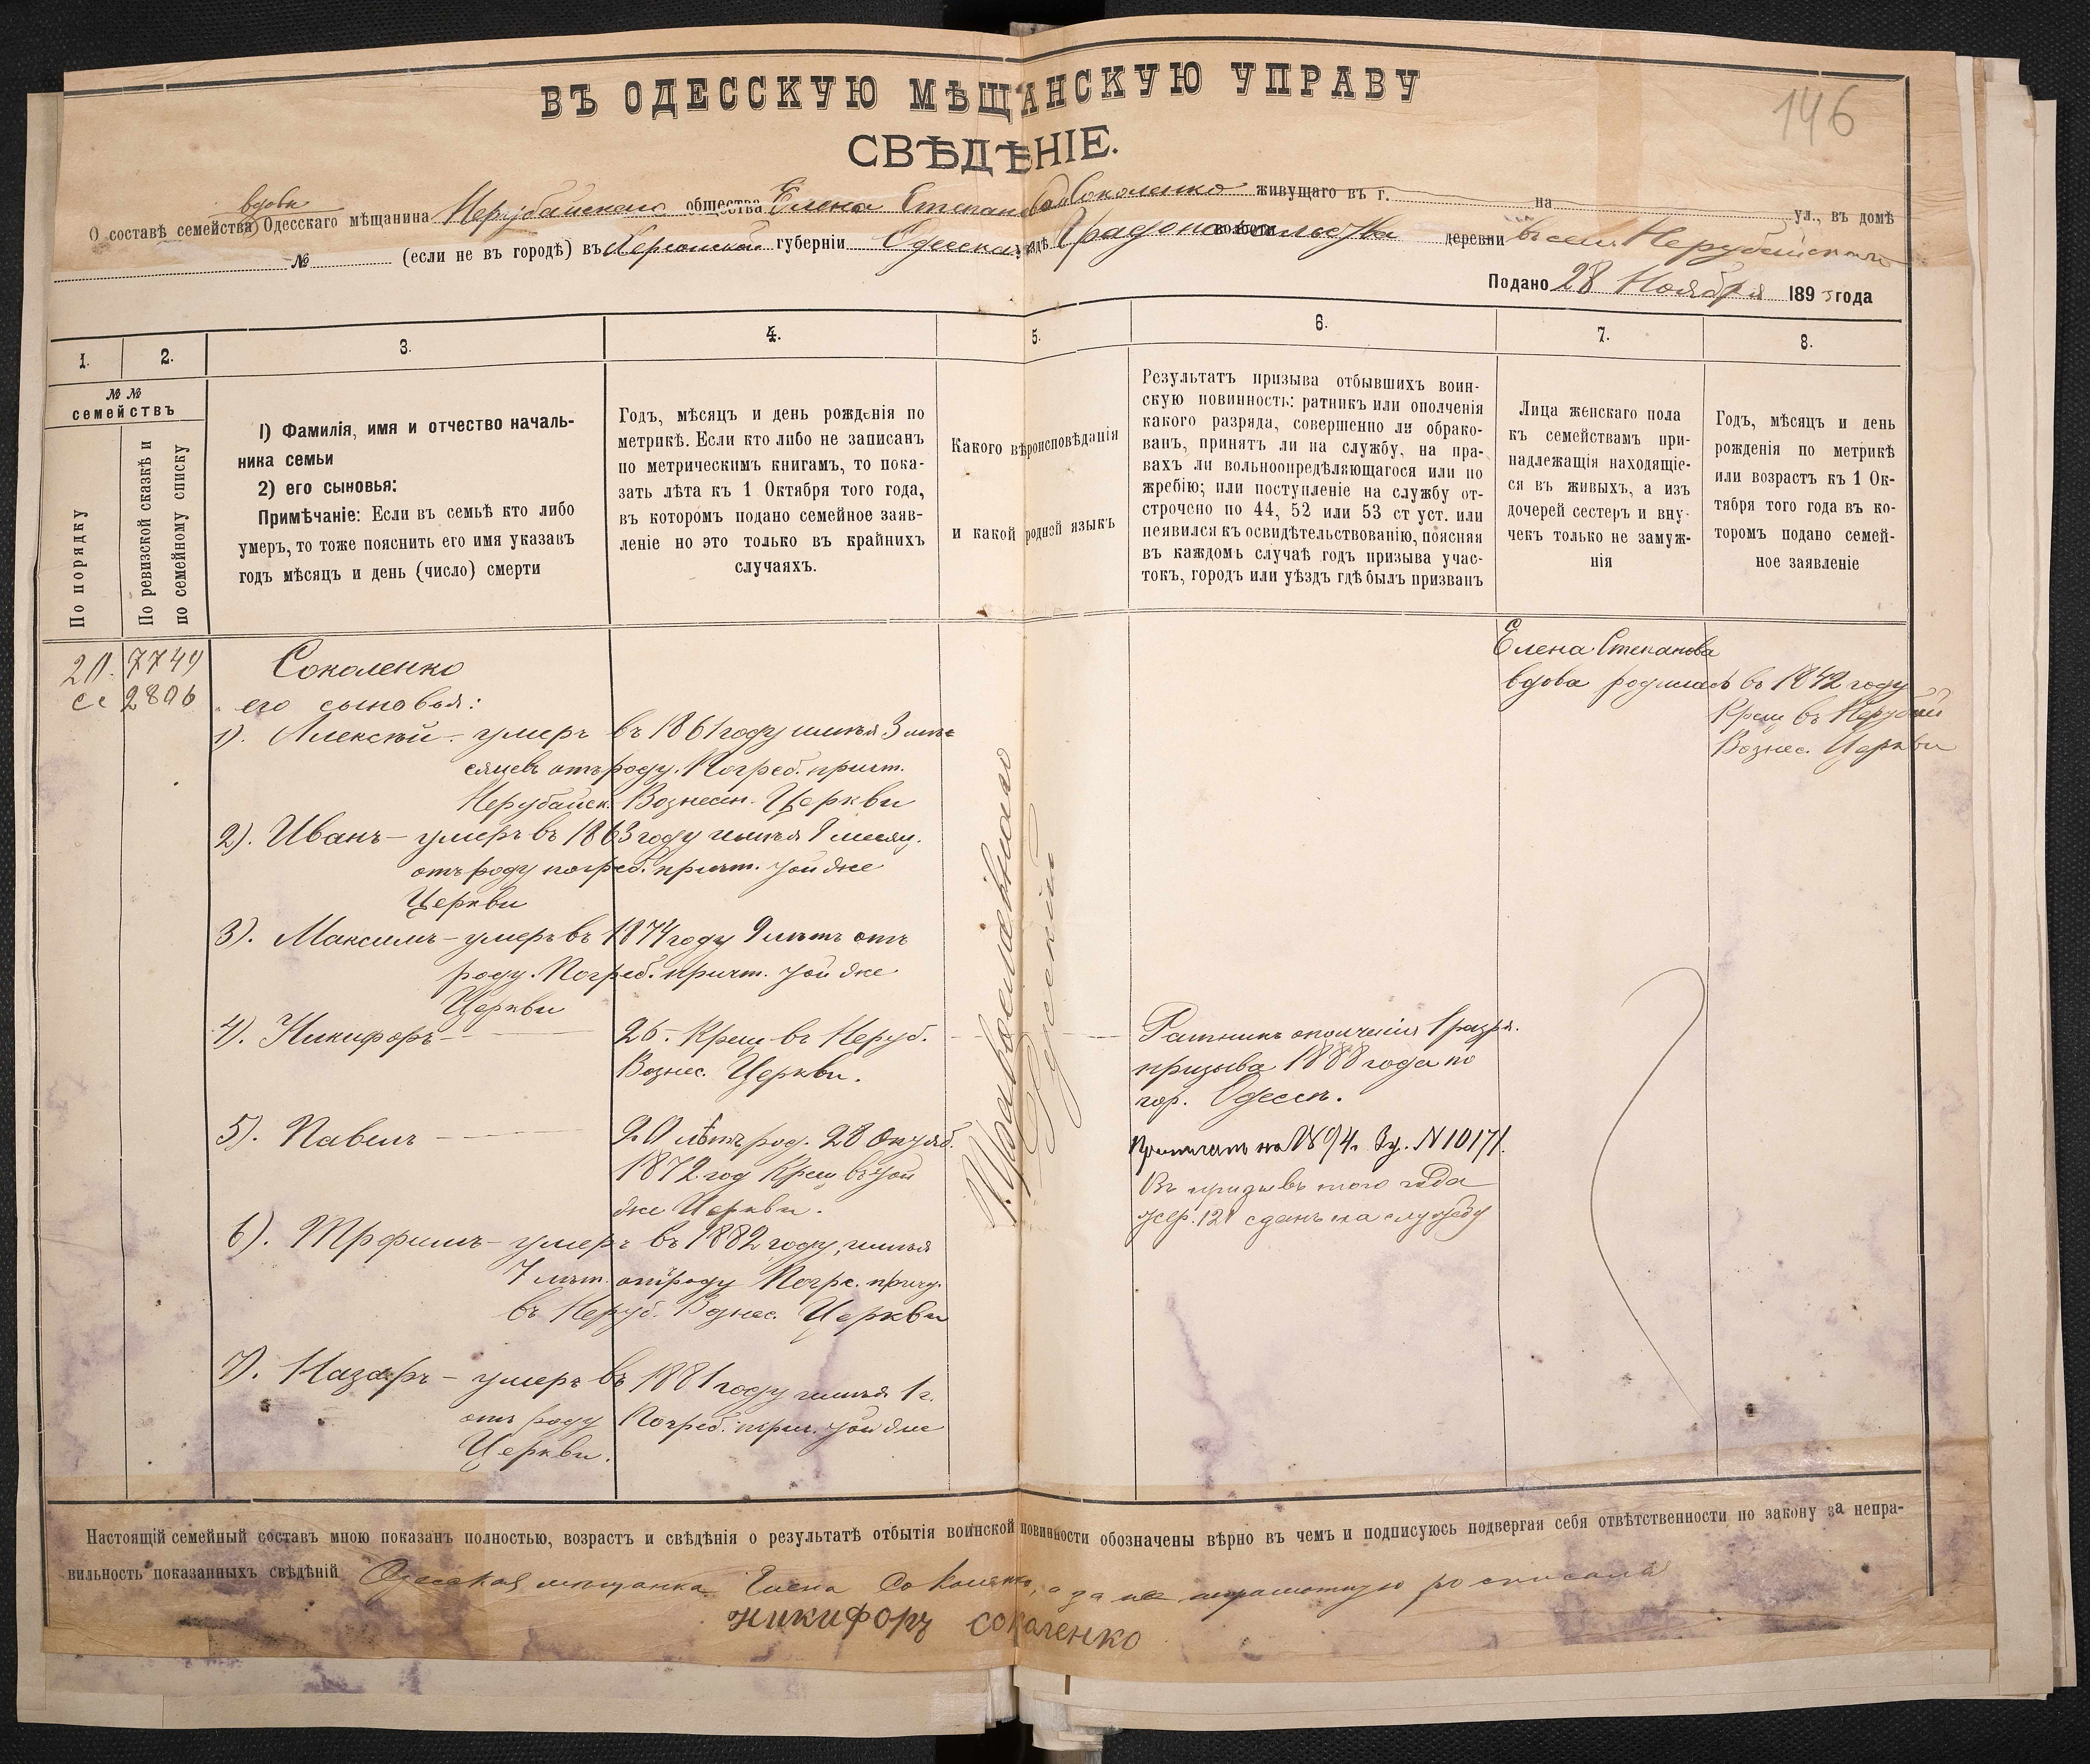 146
ВЪ ОДЕССКУЮ МѢЩАНСКУЮ УПРАВУ
СВѢДѢНІЕ.
вдовы
О составѣ семейства Одесскаго мѣщанина Нерубайскаго общества Елена Степанова Соколенко живущаго въ г. на ул., въ домѣ
№ (если не въ городѣ) въ Херсонской губерніи Одесскаго уѣздѣ Градоначальства волости деревни въ сел. Нерубайскомъ
Подано 28 Ноября 1893 года
1. 2. 3. 4. 5. 6. 7. 8.
№ №
семействъ
По порядку
По ревизской сказкѣ и
по семейному списку
1) Фамилія, имя и отчество началь-
ника семьи
2) его сыновья:
Примѣчаніе: Если въ семьѣ кто либо
умеръ, то тоже пояснить его имя указавъ
годъ мѣсяцъ и день (число) смерти
Годъ, мѣсяцъ и день рожденія по
метрикѣ. Если кто либо не записанъ
по метрическимъ книгамъ, то пока-
зать лѣта къ 1 Октября того года,
въ которомъ подано семейное заяв-
леніе но это только въ крайнихъ
случаяхъ.
Какого вѣроисповѣданія
и какой родной языкъ
Результатъ призыва отбывшихъ воин-
скую повинность: ратникъ или ополченія
какого разряда, совершенно ли обрако-
ванъ, принятъ ли на службу, на пра-
вахъ ли вольноопредѣляющагося или по
жребію; или поступленіе на службу от-
строчено по 44, 52 или 53 ст уст. или
неявился къ освидѣтельствованію, поясняя
въ каждомъ случаѣ годъ призыва учас-
токъ, городъ или уѣздъ гдѣ былъ призванъ
Лица женскаго пола
къ семействамъ при-
надлежащія находящіе-
ся въ живыхъ, а изъ
дочерей сестеръ и вну-
чекъ только не замуж-
нія
Годъ, мѣсяцъ и день
рожденія по метрикѣ
или возрастъ къ 1 Ок-
тября того года въ ко-
торомъ подано семей-
ное заявленіе
20. 7749
сс 2806
Соколенко
его сыновья:
1). Алексѣй – умеръ въ 1861 году имѣя 3 мѣ-
сяцевъ отъ роду. Погреб. причт.
Нерубайск. Вознесен. Церкви
2). Иванъ – умеръ въ 1863 году имѣя 9 мѣсяц.
отъ роду погреб. причт. той же
Церкви
3). Максимъ – умеръ въ 1874 году 9 лѣтъ отъ
роду. Погреб. причт. той же
Церкви
4). Никифоръ – 26. Крещ въ Неруб.
Вознес. Церкви.
5). Павелъ – 20 лѣтъ род. 28 Октяб.
1872 год Крещ въ той
же Церкви.
6). Трофимъ – умеръ въ 1882 году, имѣя
7 лѣт. отъ роду Погре. причт.
въ Неруб. Вознес. Церкви
7). Назаръ – умеръ въ 1881 году имѣя 1 г.
отъ роду Погреб. прич. той же
Церкви.
Православнаго
Русскій
Ратникъ ополченія 1 разр.
призыва 1888 года по
гор. Одессѣ.
на 1894. № 10171.
Въ призывъ того года
жер. 121 сданъ на службу
Елена Степанова
вдова родилась въ 1842 году
Крещ въ Нерубай
Вознес. Церкви
Настоящій семейный составъ мною показанъ полностью, возрастъ и свѣдѣнія о результатѣ отбытія воинской повинности обозначены вѣрно въ чемъ и подписуюсь подвергая себя отвѣтственности по закону за непра-
вильность показанныхъ свѣдѣній Одесская мѣщанка Елена Соколенко, а за нее неграмотную росписался
Никифоръ Соколенко